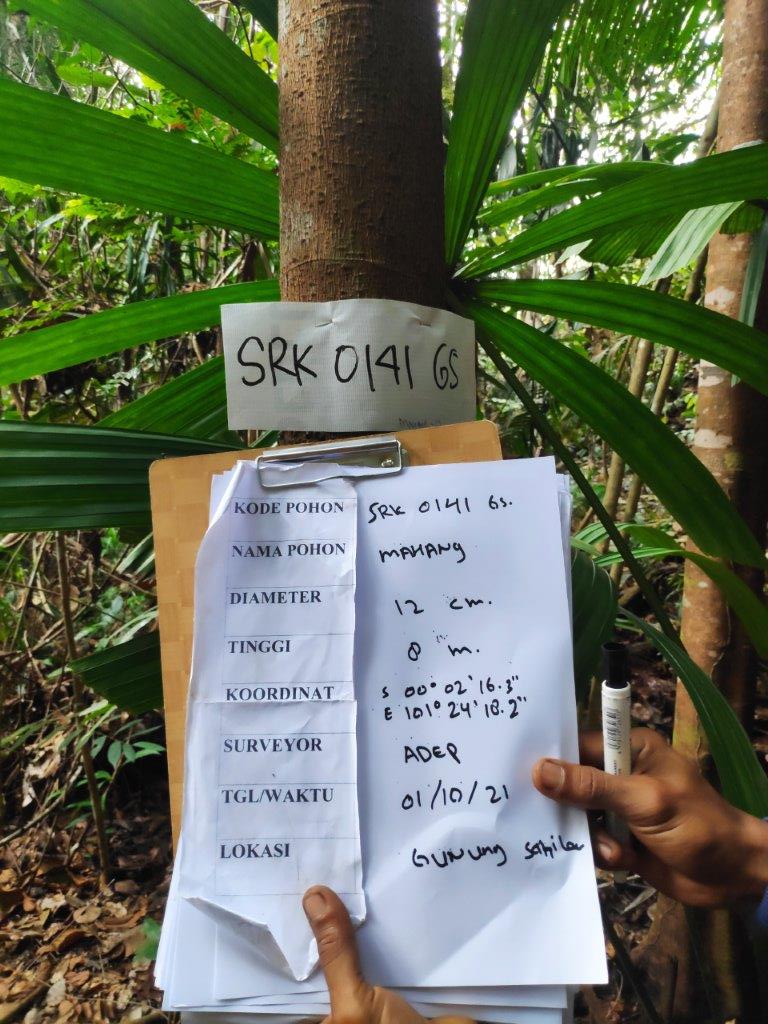 SRK 0141 GS
KODE POHON SRK 0141 GS.
NAMA POHON MAHANG
DIAMETER 12 cm.
TINGGI 8 m.
KOORDINAT S 00° 02' 16.3"
E 101° 24' 18.2"
SURVEYOR ADER
TGL/WAKTU 01/10/21
LOKASI GUNUNG Sahilan